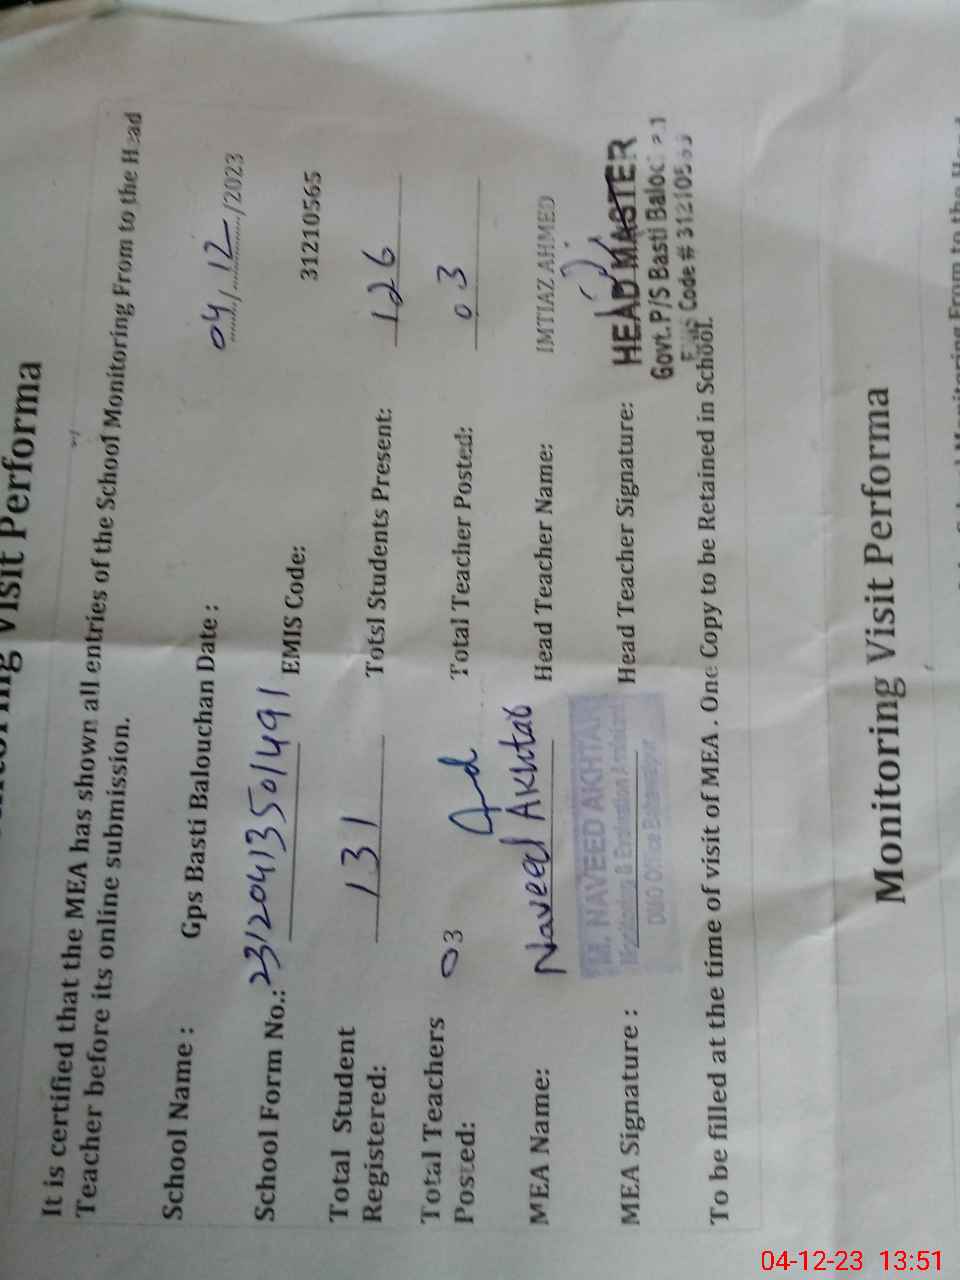 Monitoring Visit Performa
It is certified that the MEA has shown all entries of the School Monitoring From to the Head
Teacher before its online submission.
School Name : Gps Basti Balouchan Date : 04/12/2023
School Form No.: 23120413501491 EMIS Code: 31210565
Total Student Registered: 131 Totsl Students Present: 126
Total Teachers Posted: 03 Total Teacher Posted: 03
MEA Name: Naveed Akhtar Head Teacher Name: IMTIAZ AHMED
MEA Signature : Head Teacher Signature:
M. NAVEED AKHTAR
Monitoring & Evaluation Assistant
DMO Office Bahawalpur
HEAD MASTER
Govt. P/S Basti Baloc
Code # 312105
To be filled at the time of visit of MEA . One Copy to be Retained in School.
Monitoring Visit Performa
School Monitoring From to the Head
04-12-23 13:51